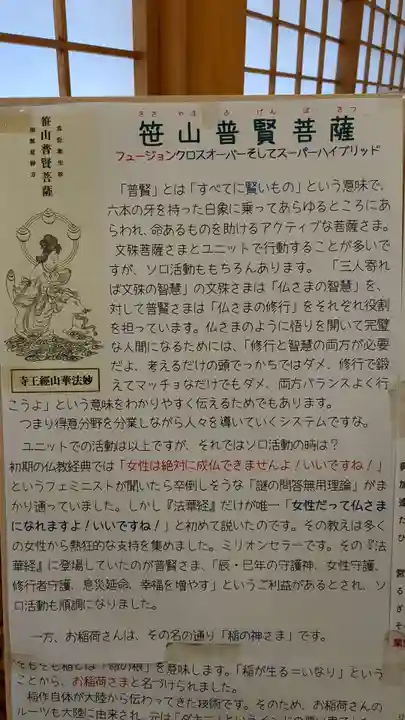 ささやまふげんぼさつ
笹山普賢菩薩
フュージョンクロスオーバーそしてスーパーハイブリッド
笹山普賢菩薩
妙法華山經王寺
「普賢」とは「すべてに賢いもの」という意味で、
六本の牙を持った白象に乗ってあらゆるところにあ
らわれ、命あるものを助けるアクティブな菩薩さま。
文殊菩薩さまとユニットで行動することが多いで
すが、ソロ活動ももちろんあります。「三人寄れ
ば文殊の智慧」の文殊さまは「仏さまの智慧」を、
対して普賢さまは「仏さまの修行」をそれぞれ役割
を担っています。仏さまのように悟りを開いて完璧
な人間になるためには、「修行と智慧の両方が必要
だよ、考えるだけの頭でっかちではダメ、修行で鍛
えてマッチョなだけでもダメ、両方バランスよく行
こうよ」という意味をわかりやすく伝えるためでもあります。
つまり得意分野を分業しながら人々を導いていくシステムですな。
ユニットでの活動は以上ですが、それではソロ活動の時は？
初期の仏教経典では「女性は絶対に成仏できませんよ！いいですね！」
というフェミニストが聞いたら卒倒しそうな「謎の問答無用理論」がま
かり通っていました。しかし『法華経』だけが唯一「女性だって仏さま
になれますよ！いいですね！」と初めて説いたのです。その教えは多く
の女性から熱狂的な支持を集めました。ミリオンセラーです。その『法
華経』に登場していたのが普賢さま、「辰・巳年の守護神、女性守護、
修行者守護、息災延命、幸福を増やす」というご利益があるとされ、ソ
ロ活動も順調になりました。
一方、お稲荷さんは、その名の通り「稲の神さま」です。
そもそも稲とは「命の根」を意味します。「稲が生る＝いなり」という
ことから、お稲荷さまと名づけられました。
稲作自体が大陸から伝わってきた技術です。そのため、お稲荷さんの
ルーツも大陸に由来され、元は「ダキニ」という